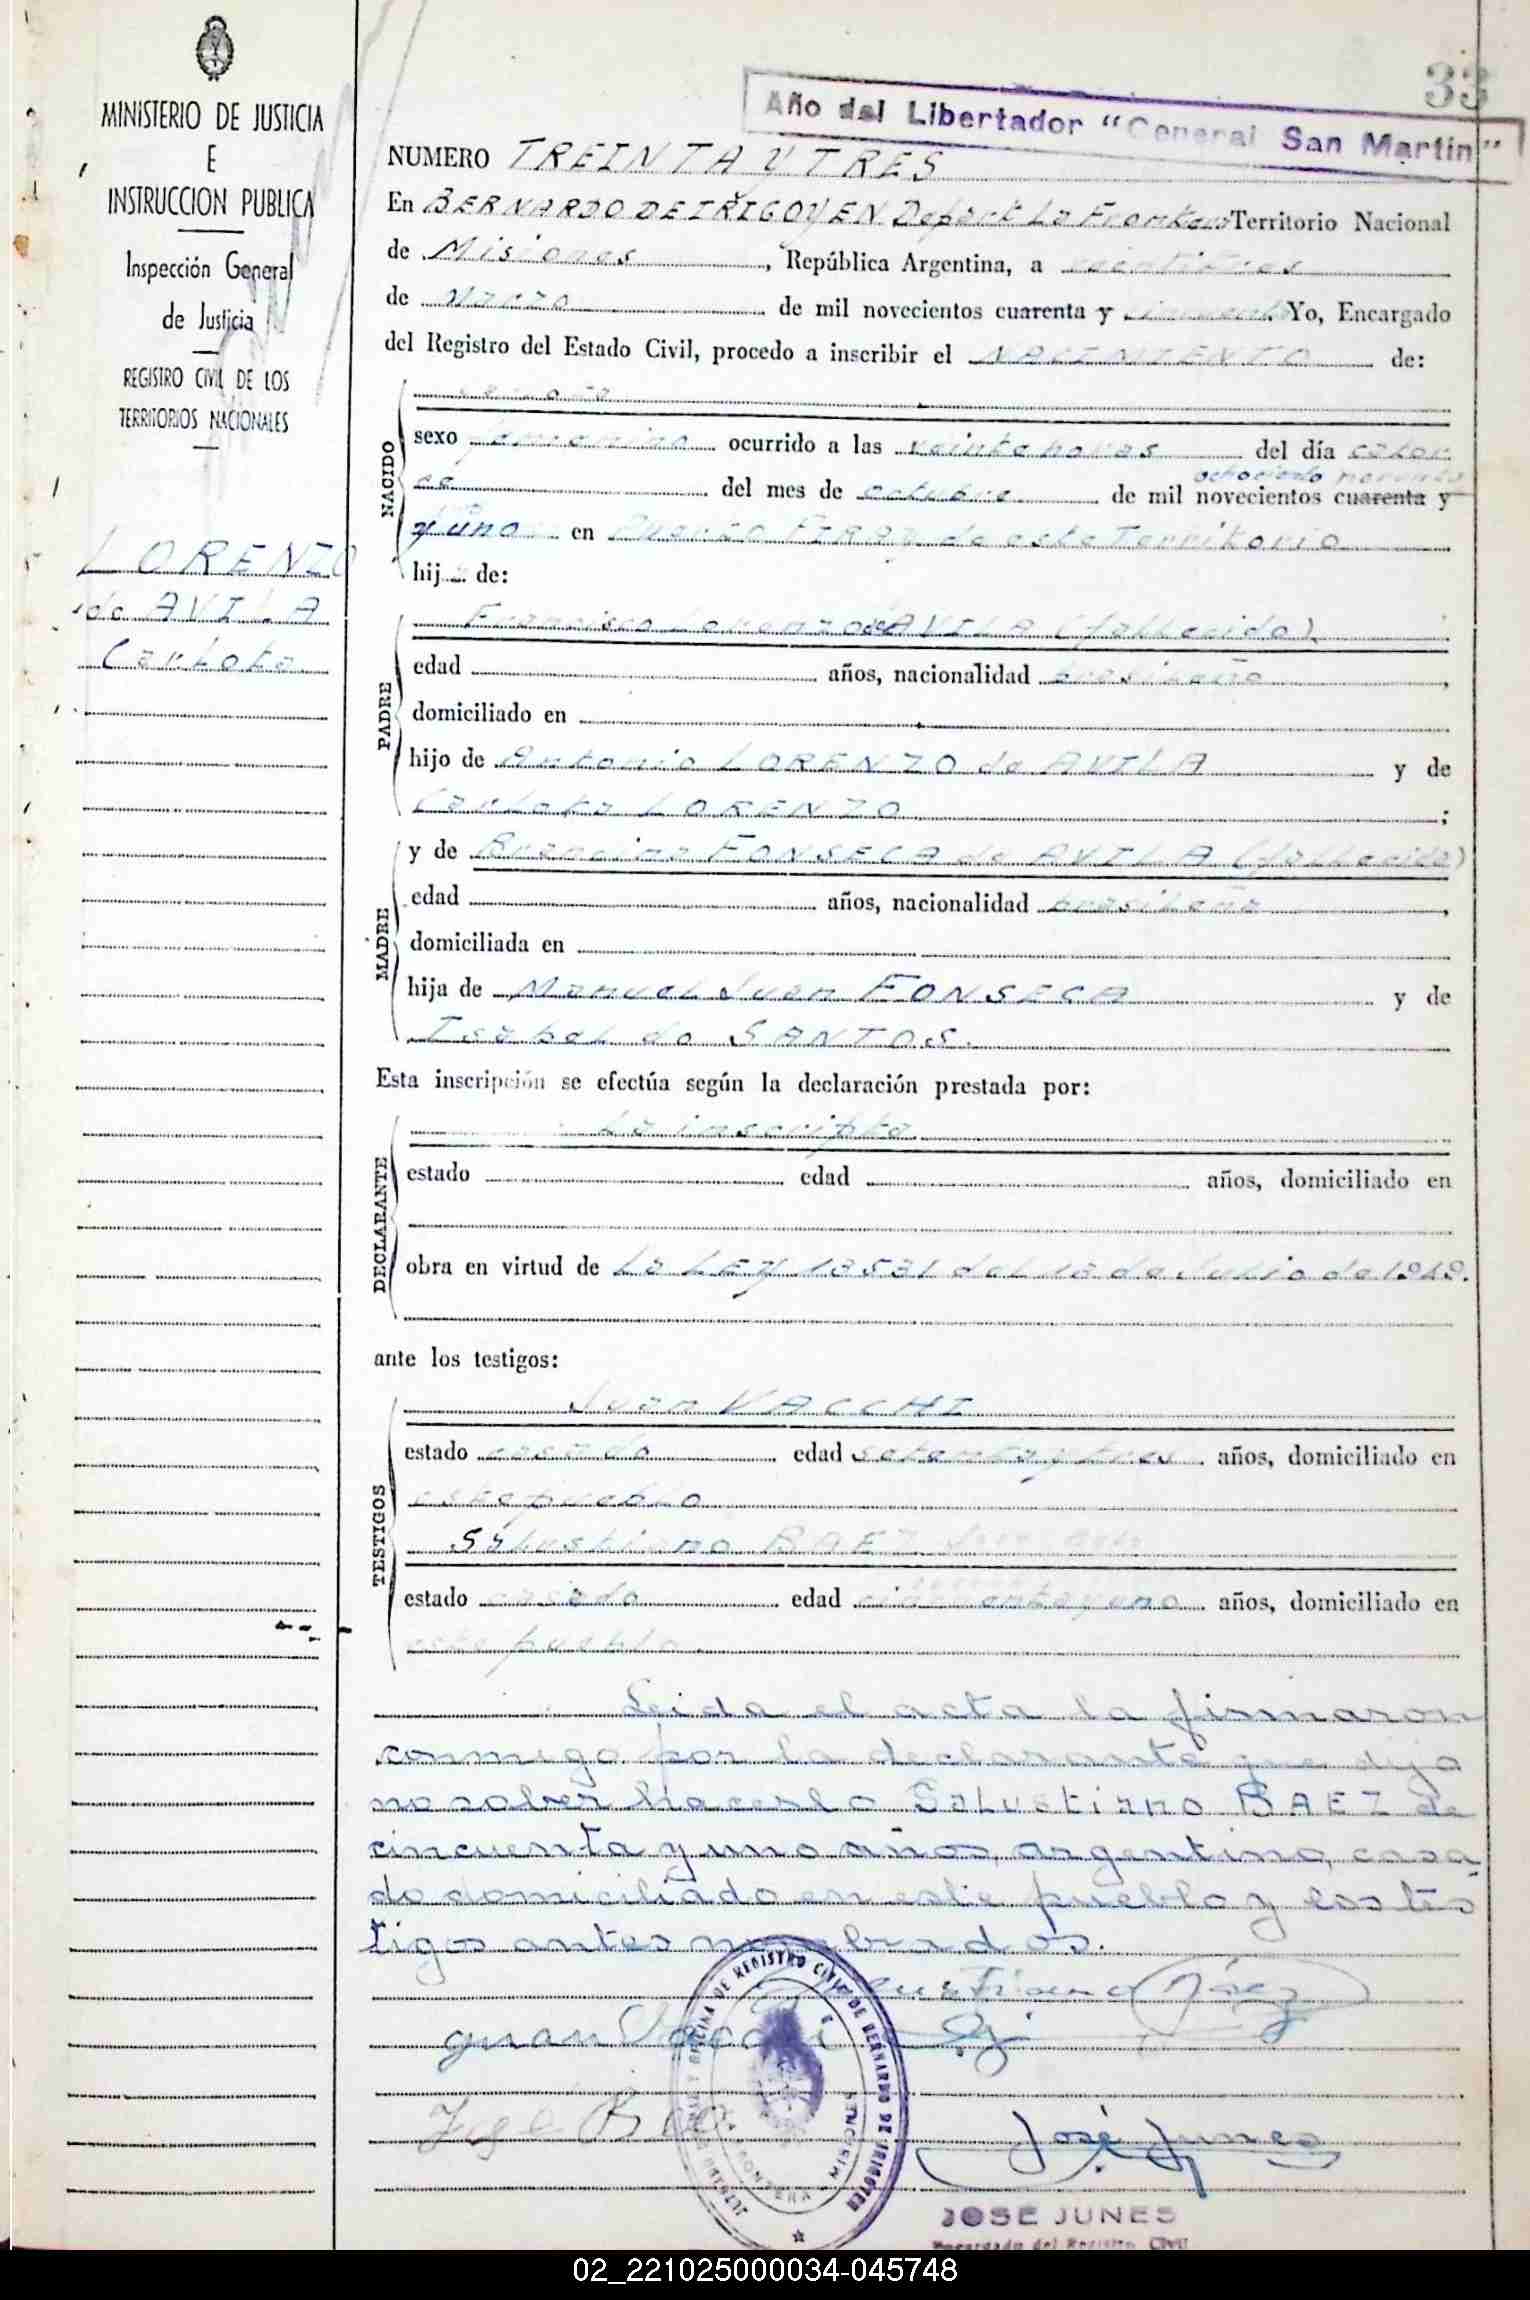 33
Año del Libertador "General San Martin"
MINISTERIO DE JUSTICIA
E
INSTRUCCION PUBLICA
Inspección General
de Justicia
REGISTRO CIVIL DE LOS
TERRITORIOS NACIONALES
LORENZO
de AVILA
Carlota
NUMERO TREINTA Y TRES
En BERNARDO DE IRIGOYEN Depart La Frontera Territorio Nacional
de Misiones, República Argentina, a veintitres
de Marzo de mil novecientos cuarenta y cincuenta Yo, Encargado
del Registro del Estado Civil, procedo a inscribir el NACIMIENTO de:
NACIDO
sexo femenino ocurrido a las veinte horas del día cator
ce del mes de octubre de mil novecientos cuarenta y
ochociento noventa
y uno en Puerto PIRAY de este Territorio
hija de:
PADRE
Francisco Lorenzo de AVILA (fallecido)
edad años, nacionalidad brasileño,
domiciliado en
hijo de Antonio LORENZO de AVILA y de
Carlota LORENZO;
MADRE
y de FONSECA de AVILA (fallecida)
edad años, nacionalidad brasileña,
domiciliada en
hija de Manuel Juan FONSECA y de
Isabel do SANTOS.
Esta inscripción se efectúa según la declaración prestada por:
DECLARANTE
La inscripta
estado edad años, domiciliado en
obra en virtud de La LEY 13531 del 13 de Julio de 1949.
ante los testigos:
TESTIGOS
Juan VACCHI
estado casado edad setenta y tres años, domiciliado en
este pueblo
Salustiano BAEZ
estado casado edad cincuenta y uno años, domiciliado en
este pueblo
Leida el acta la firmaron
conmigo por la declarante que dijo
no saber hacerlo Salustiano BAEZ de
cincuenta y uno años, argentino, casa
do domiciliado en este pueblo y los tes
tigos antes nombrados.
Báez
Juan Vacchi
José Junes
OFICINA DE REGISTRO CIVIL DE BERNARDO DE IRIGOYEN
FRONTERA
MISIONES
JOSE JUNES
Encargado del Registro Civil
02_221025000034-045748